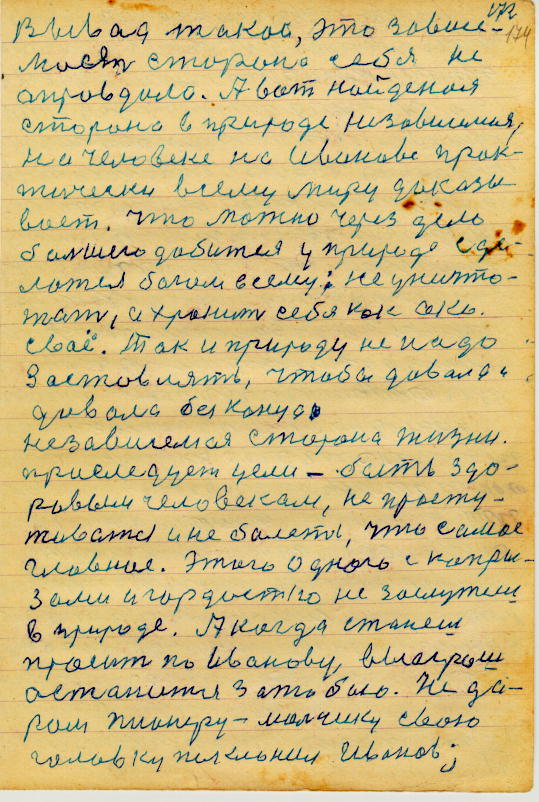 172
174
Вывад такой, это завси-
масят старона себя не
оправдала. А вот найденая
сторона в природе независимая,
на человеке на Иванове прак-
тически всему миру доказы
вает. Что можно через дело
балшего добится у природе сде-
лотся богом всему: не уничто-
жат, а хранит себя как око.
сваё. Так и природу не надо
Заставлять, чтобы давала и
давала без конца
независемая сторона жизни.
приследует цели – быть здо-
ровым человекам, не просту-
живатся и не балеть, что самое
главное. Этого одного с капри-
зами и гордостью не заслужиш
в природе. А когда станеш
просит по Иванову, выиграш
останится за тобою. Не да-
ром пионеру – малчику свою
головку пиклонил Иванов;